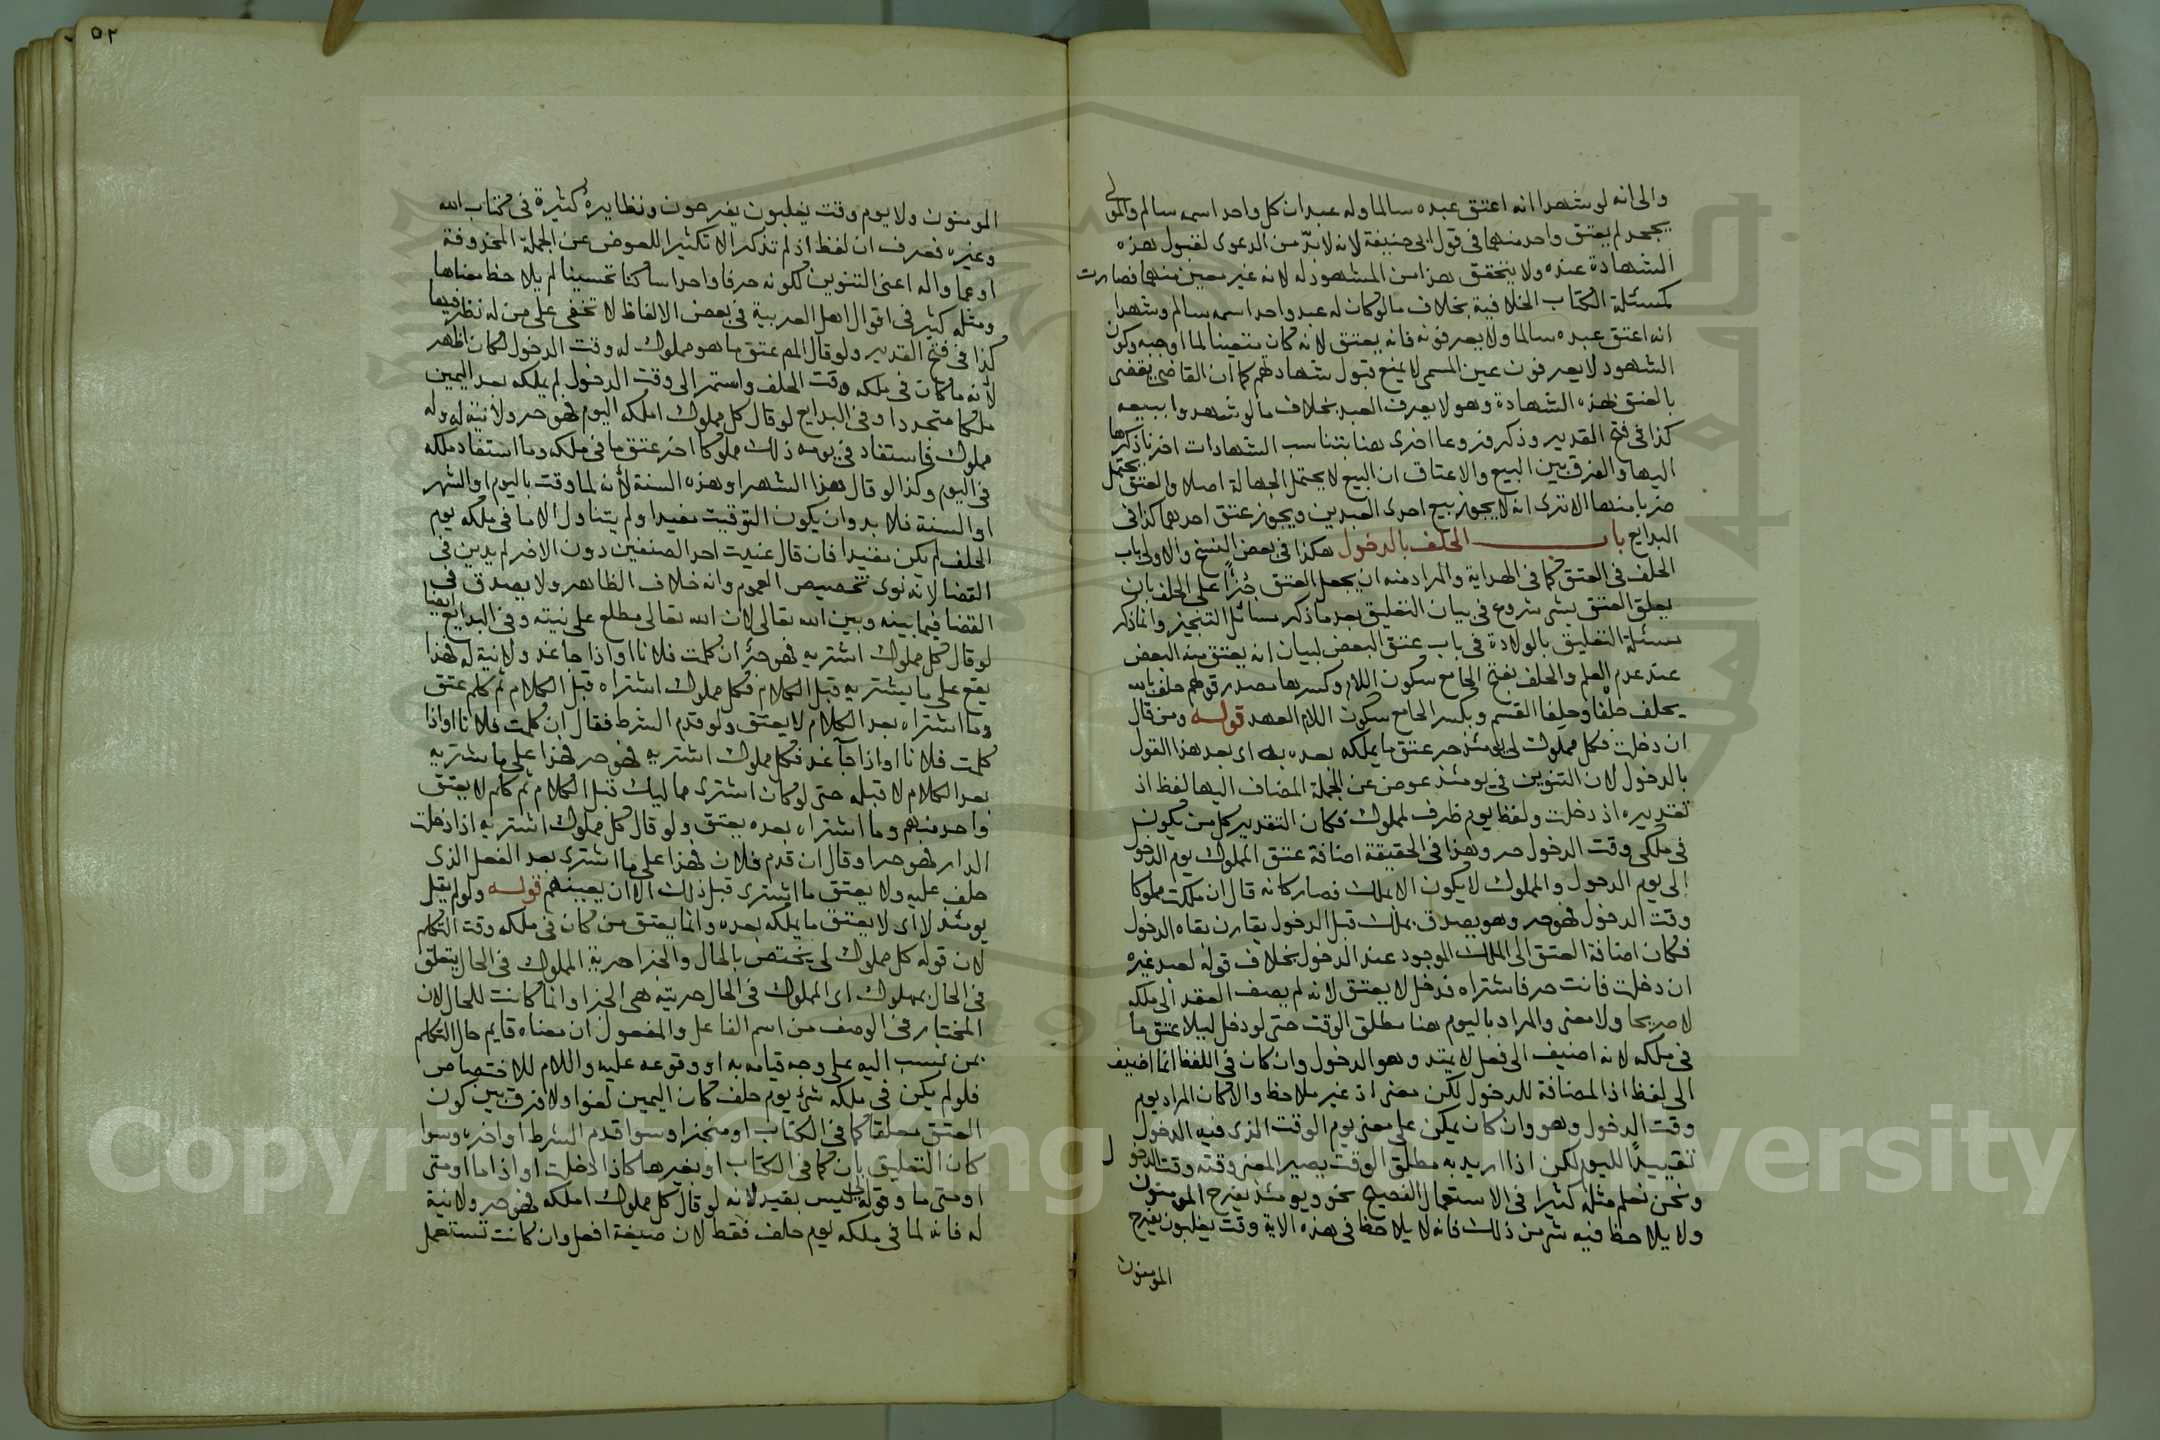 والى انه لو شهدا انه اعتق عبده سالما وله عبدان كل واحد اسمه سالم والمولى
يجحد لم يعتق واحد منهما في قول ابي حنيفة لانه لا بدّ من الدعوى لقبول هذه
الشهادة عنده ولا يتحقق هنا من المشهود له لانه غير معين منهما فصارت
كمسئلة الكتاب الخلافية بخلاف ما لو كان له عبد واحد اسمه سالم وشهدا
انه اعتق عبده سالما ولا يعرفونه فانه يعتق لانه كان متعينا لما اوجبه وكون
الشهود لا يعرفون عين المسمى لا يمنع قبول شهادتهم كما ان القاضي يقضى
بالعتق بهذه الشهادة وهو لا يعرف العبد بخلاف ما لو شهدوا ببيعه
كذا في فتح القدير وذكر فروعا اخرى هنا تناسب الشهادات اخرنا ذكرها
اليها والفرق بين البيع والاعتاق ان البيع لا يحتمل الجهالة اصلا والعتق يحتمل
ضربا منها الا ترى انه لا يجوز بيع احدى العبدين ويجوز عتق احدهما كذا في
البدايع باب الحلف بالدخول هكذا في بعض النسخ والاولى باب
الحلف في العتق كما في الهداية والمراد منه ان يجعل العتق جُزأً على الحلف بان
يعلق العتق بشي شروع في بيان التعليق بعد ما ذكر مسائل التنجيز وانما ذكر
مسئلة التعليق بالولادة في باب عتق البعض لبيان انه يعتق منه البعض
عند عدم العلم والحلف بفتح الحا مع سكون اللام وكسرها مصدر قولهم حلف بالله
يحلف حلْفا وحلِفا القسم وبكسر الحا مع سكون اللام العهد قوله ومن قال
ان دخلت فكل مملوك لي يومئذ حر عتق ما يملكه بعده به اى بعد هذا القول
بالدخول لان التنوين في يومئذ عوض عن الجملة المضاف اليها لفظ اذ
تقديره اذ دخلت ولفظ يوم ظرف لمملوك فكان التقدير كل من يكون
في ملكى وقت الدخول حر وهذا في الحقيقة اضافة عتق المملوك يوم الدخول
الى يوم الدخول والمملوك لا يكون الا بملك فصار كانه قال ان ملكت مملوكا
وقت الدخول فهو حر وهو يصدق بملك قبل الدخول يقارن بقاه الدخول
فكان اضافة العتق الى الملك الموجود عند الدخول بخلاف قوله لعبد غيره
ان دخلت فانت حر فاشتراه فدخل لا يعتق لانه لم يضف العقد الى ملكه
لا صريحا ولا معنى والمراد باليوم هنا مطلق الوقت حتى لو دخل ليلا عتق ما
في ملكه لانه اضيف الى فعل لا يمتد وهو الدخول وان كان في اللفظ انما اضيف
الى لفظ اذ المضافة للدخول لكن معنى اذ غير ملاحظ والا كان المراد يوم
وقت الدخول وهو وان كان يمكن على معنى يوم الوقت الذى فيه الدخول
تقييدًا لليوم لكن اذا اريد به مطلق الوقت يصير المعنى وقته وقت الدخول
ونحن نعلم مثله كثيرا في الاستعمال الفصيح نحو ويومئذ يفرح المومنون
ولا يلاحظ فيه شي من ذلك فانه لا يلاحظ في هذه الاية وقت يغلبون يفرح
المومنون
٥٢
المومنون ولا يوم وقت يغلبون يفرحون ونظايره كثيرة في كتاب الله
وغيره فعرف ان لفظ اذ لم تذكر الا تكثيرا للعوض عن الجملة المحذوفة
او عمادا له اعنى التنوين لكونه حرفا واحدا ساكنا تحسينا لم يلاحظ معناها
ومثله كثير في اقوال اهل العربية في بعض الالفاظ لا تخفى على من له نظر فيها
كذا في فتح القدير ولو قال المص عتق ما هو مملوك له وقت الدخول لكان اظهر
لانه ما كان في ملكه وقت الحلف واستمر الى وقت الدخول لم يملكه بعد اليمين
ملكا متجددا وفي البدايع لو قال كل مملوك املكه اليوم فهو حر ولا نية له وله
مملوك فاستفاد في يومه ذلك مملوكا اخر عتق ما في ملكه وما استفاد ملكه
في اليوم وكذا لو قال هذا الشهر او هذه السنة لانه لما وقت باليوم او الشهر
او السنة فلا بد وان يكون التوقيت مفيدا ولو لم يتناول الا ما في ملكه يوم
الحلف لم يكن مفيدا فان قال عنيت احد الصنفين دون الاخر لم يدين في
القضا لانه نوى تخصيص العموم وانه خلاف الظاهر ولا يصدق في
القضا فيما بينه وبين الله تعالى لان الله تعالى مطلع على نيته وفي البدايع ايضا
لو قال كل مملوك اشتريه فهو حرّ ان كلمت فلانا او اذا جا غد ولا نية له فهذا
يقع على ما يشتريه قبل الكلام فكل مملوك اشتراه قبل الكلام ثم كلم عتق
وما اشتراه بعد الكلام لا يعتق ولو قدم الشرط فقال ان كلمت فلانا او اذا
كلمت فلانا او اذا جآ غد فكل مملوك اشتريه فهو حر فهذا على ما يشتريه
بعد الكلام لا قبله حتى لو كان اشترى مماليك قبل الكلام ثم كلم لا يعتق
واحد منهم وما اشتراه بعده يعتق ولو قال كل مملوك اشتريه اذا دخلت
الدار فهو حر او قال ان قدم فلان فهذا على ما اشترى بعد الفعل الذى
حلف عليه ولا يعتق ما اشترى قبل ذلك الا ان يعينهم قوله ولو لم يقل
يومئذ لا اى لا يعتق ما يملكه بعده وانما يعتق من كان في ملكه وقت التكلم
لان قوله كل مملوك لي يختص بالحال والجزا حرية المملوك في الحال يتعلق
في الحال بمملوك اى المملوك في الحال حريته هى الجزا وانما كانت للحال لان
المختار في الوصف من اسم الفاعل والمفعول ان معناه قايم حال التكلم
بمن نسب اليه على وجه قيامه به او وقوعه عليه واللام للاختصاص
فلو لم يكن في ملكه شي يوم حلف كان اليمين لغوا ولا فرق بين كون
العتق معلقا كما في الكتاب او منجزا وسوا قدم الشرط او اخره وسوا
كان التعليق بان كما في الكتاب او بغيرها كاذا دخلت او اذا ما او متى
او متى ما وقوله لي ليس بقيد لانه لو قال كل مملوك املكه فهو حر ولا نية
له فانه لما في ملكه يوم حلف فقط لان صيغة افعل وان كانت تستعمل